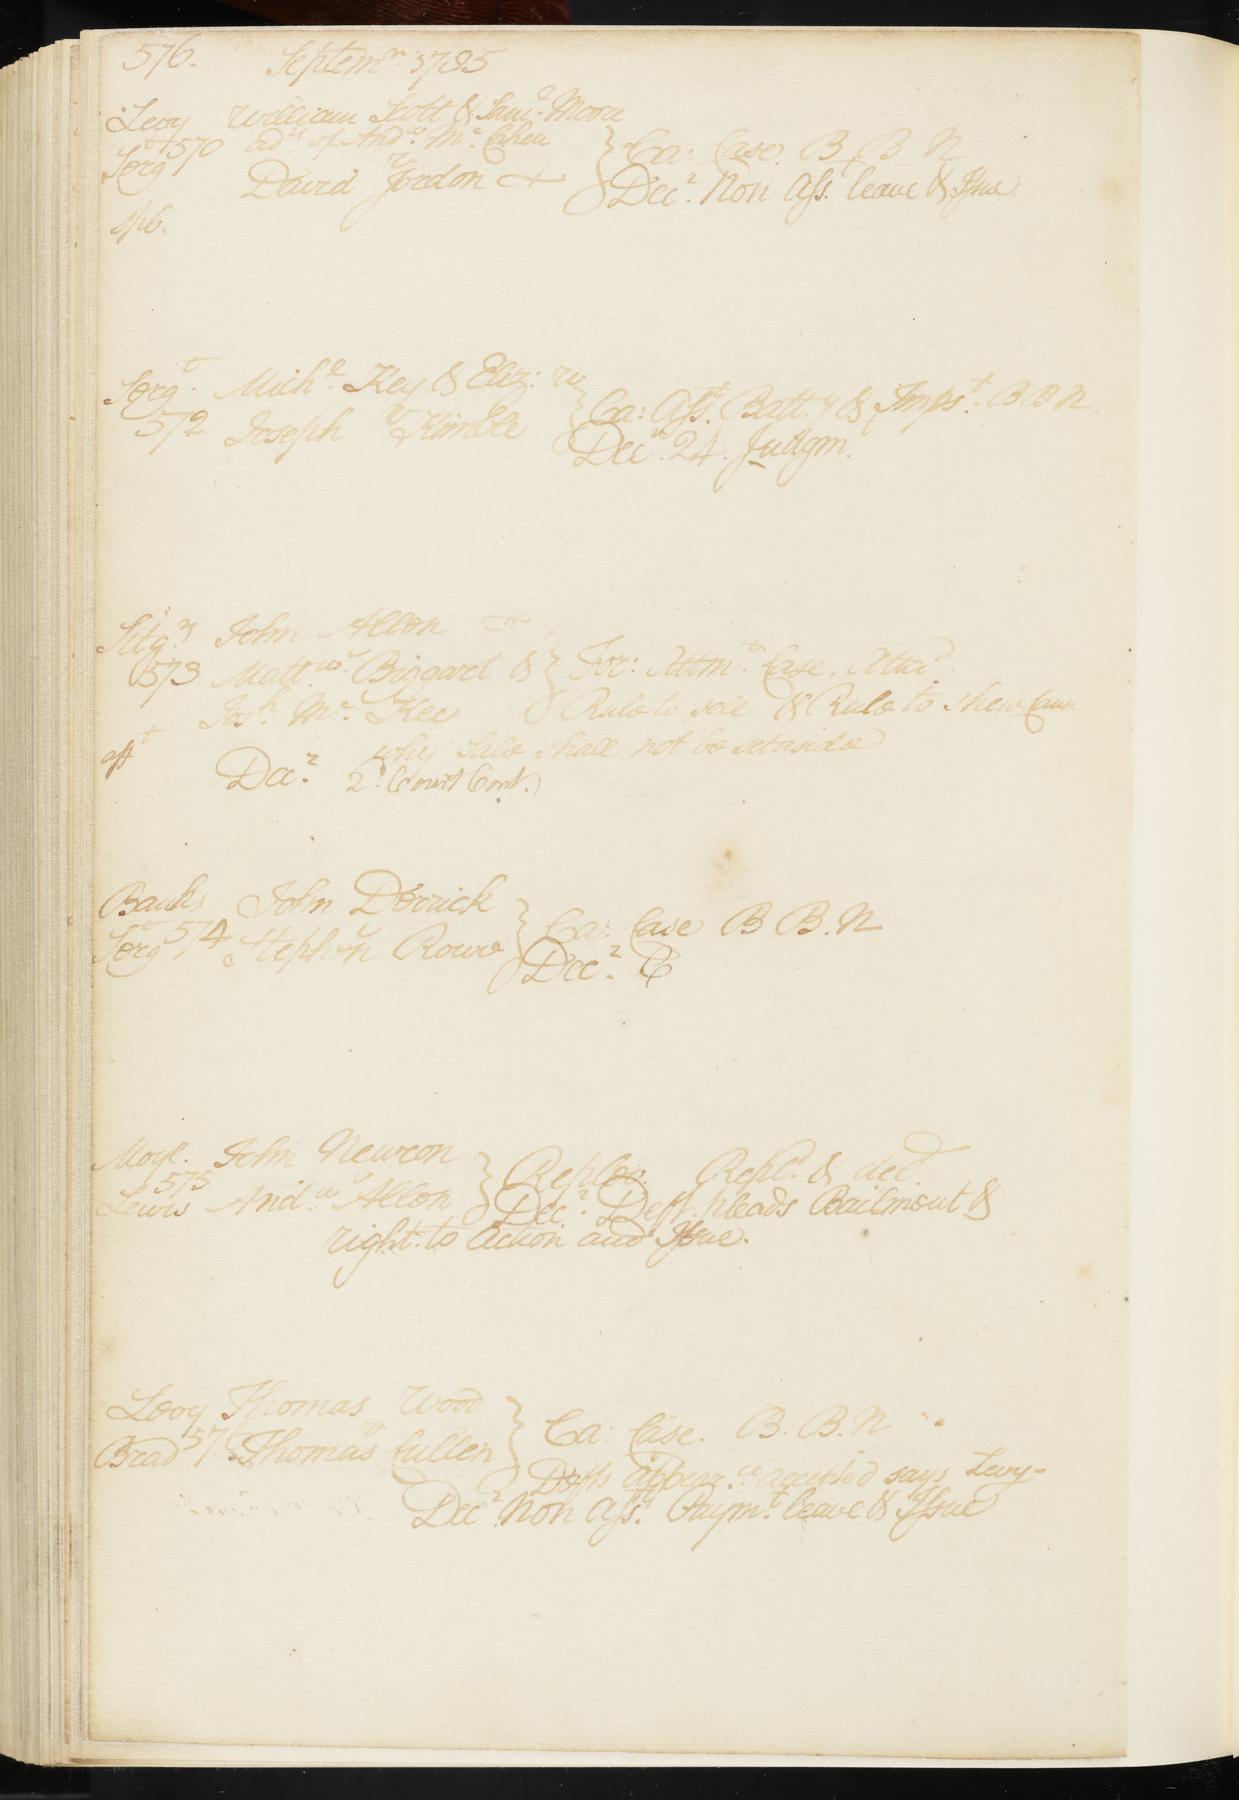 576. Septemr. 1785
Levy William Scott & Saml. Moore
570 adrs. of Andw. Mc. Chen } Ca: Case. B B N
Sergt. v David Jordon Decr. Non Ass. leave & Issue
spb.
Sergt. Michl. Key & Eliz: w } Ca: Asst. Batt.y & Impst. B B N
572 v Joseph Kimble Decr. 24. Judgm.
John Allen
573 v Mattw. Biggart & } For: Attmt. Case. Attad.
Josh. Mc. Kee Rule to sell & Rule to shew caus
why Sale shall not be setaside
Decr. 2d. Court Cont.
Banks John Derrick } Ca: Case B B. N
Sergt. 574 v Stephen Rowe Decr. C
Moyl. John Newron } Replev. Repld. & decd.
575
Lewis v Andw. Allen Decr. Deft. pleads Bailment &
right to action and Issue.
Levy Thomas Wood } Ca: Case. B. B. N
Brad 57 v Thomas Cullen
Defts appear.ce accepted says Levy-
Decr. Non Asst. Paymt. leave & Issue